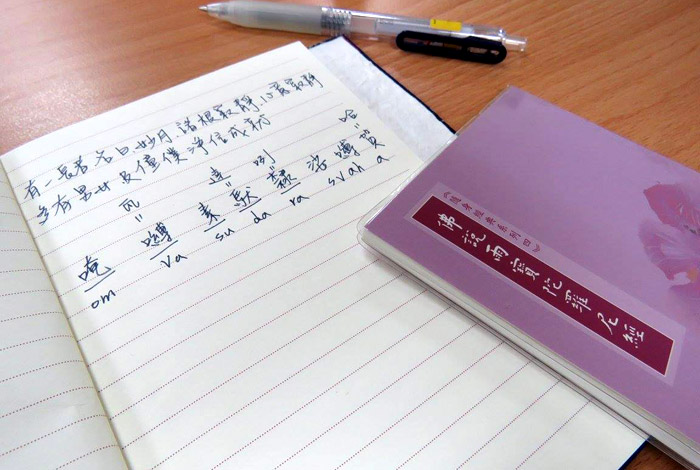 有一長者名曰妙月,諸根寂靜,心意寂靜
多有男女及僮僕,淨信成就
瓦 達 咧 哈
唵 嚩 素 馱 隸 娑 嚩 賀
om va su da ra svah a
《隨身經典系列四》
佛說雨寶陀羅尼經